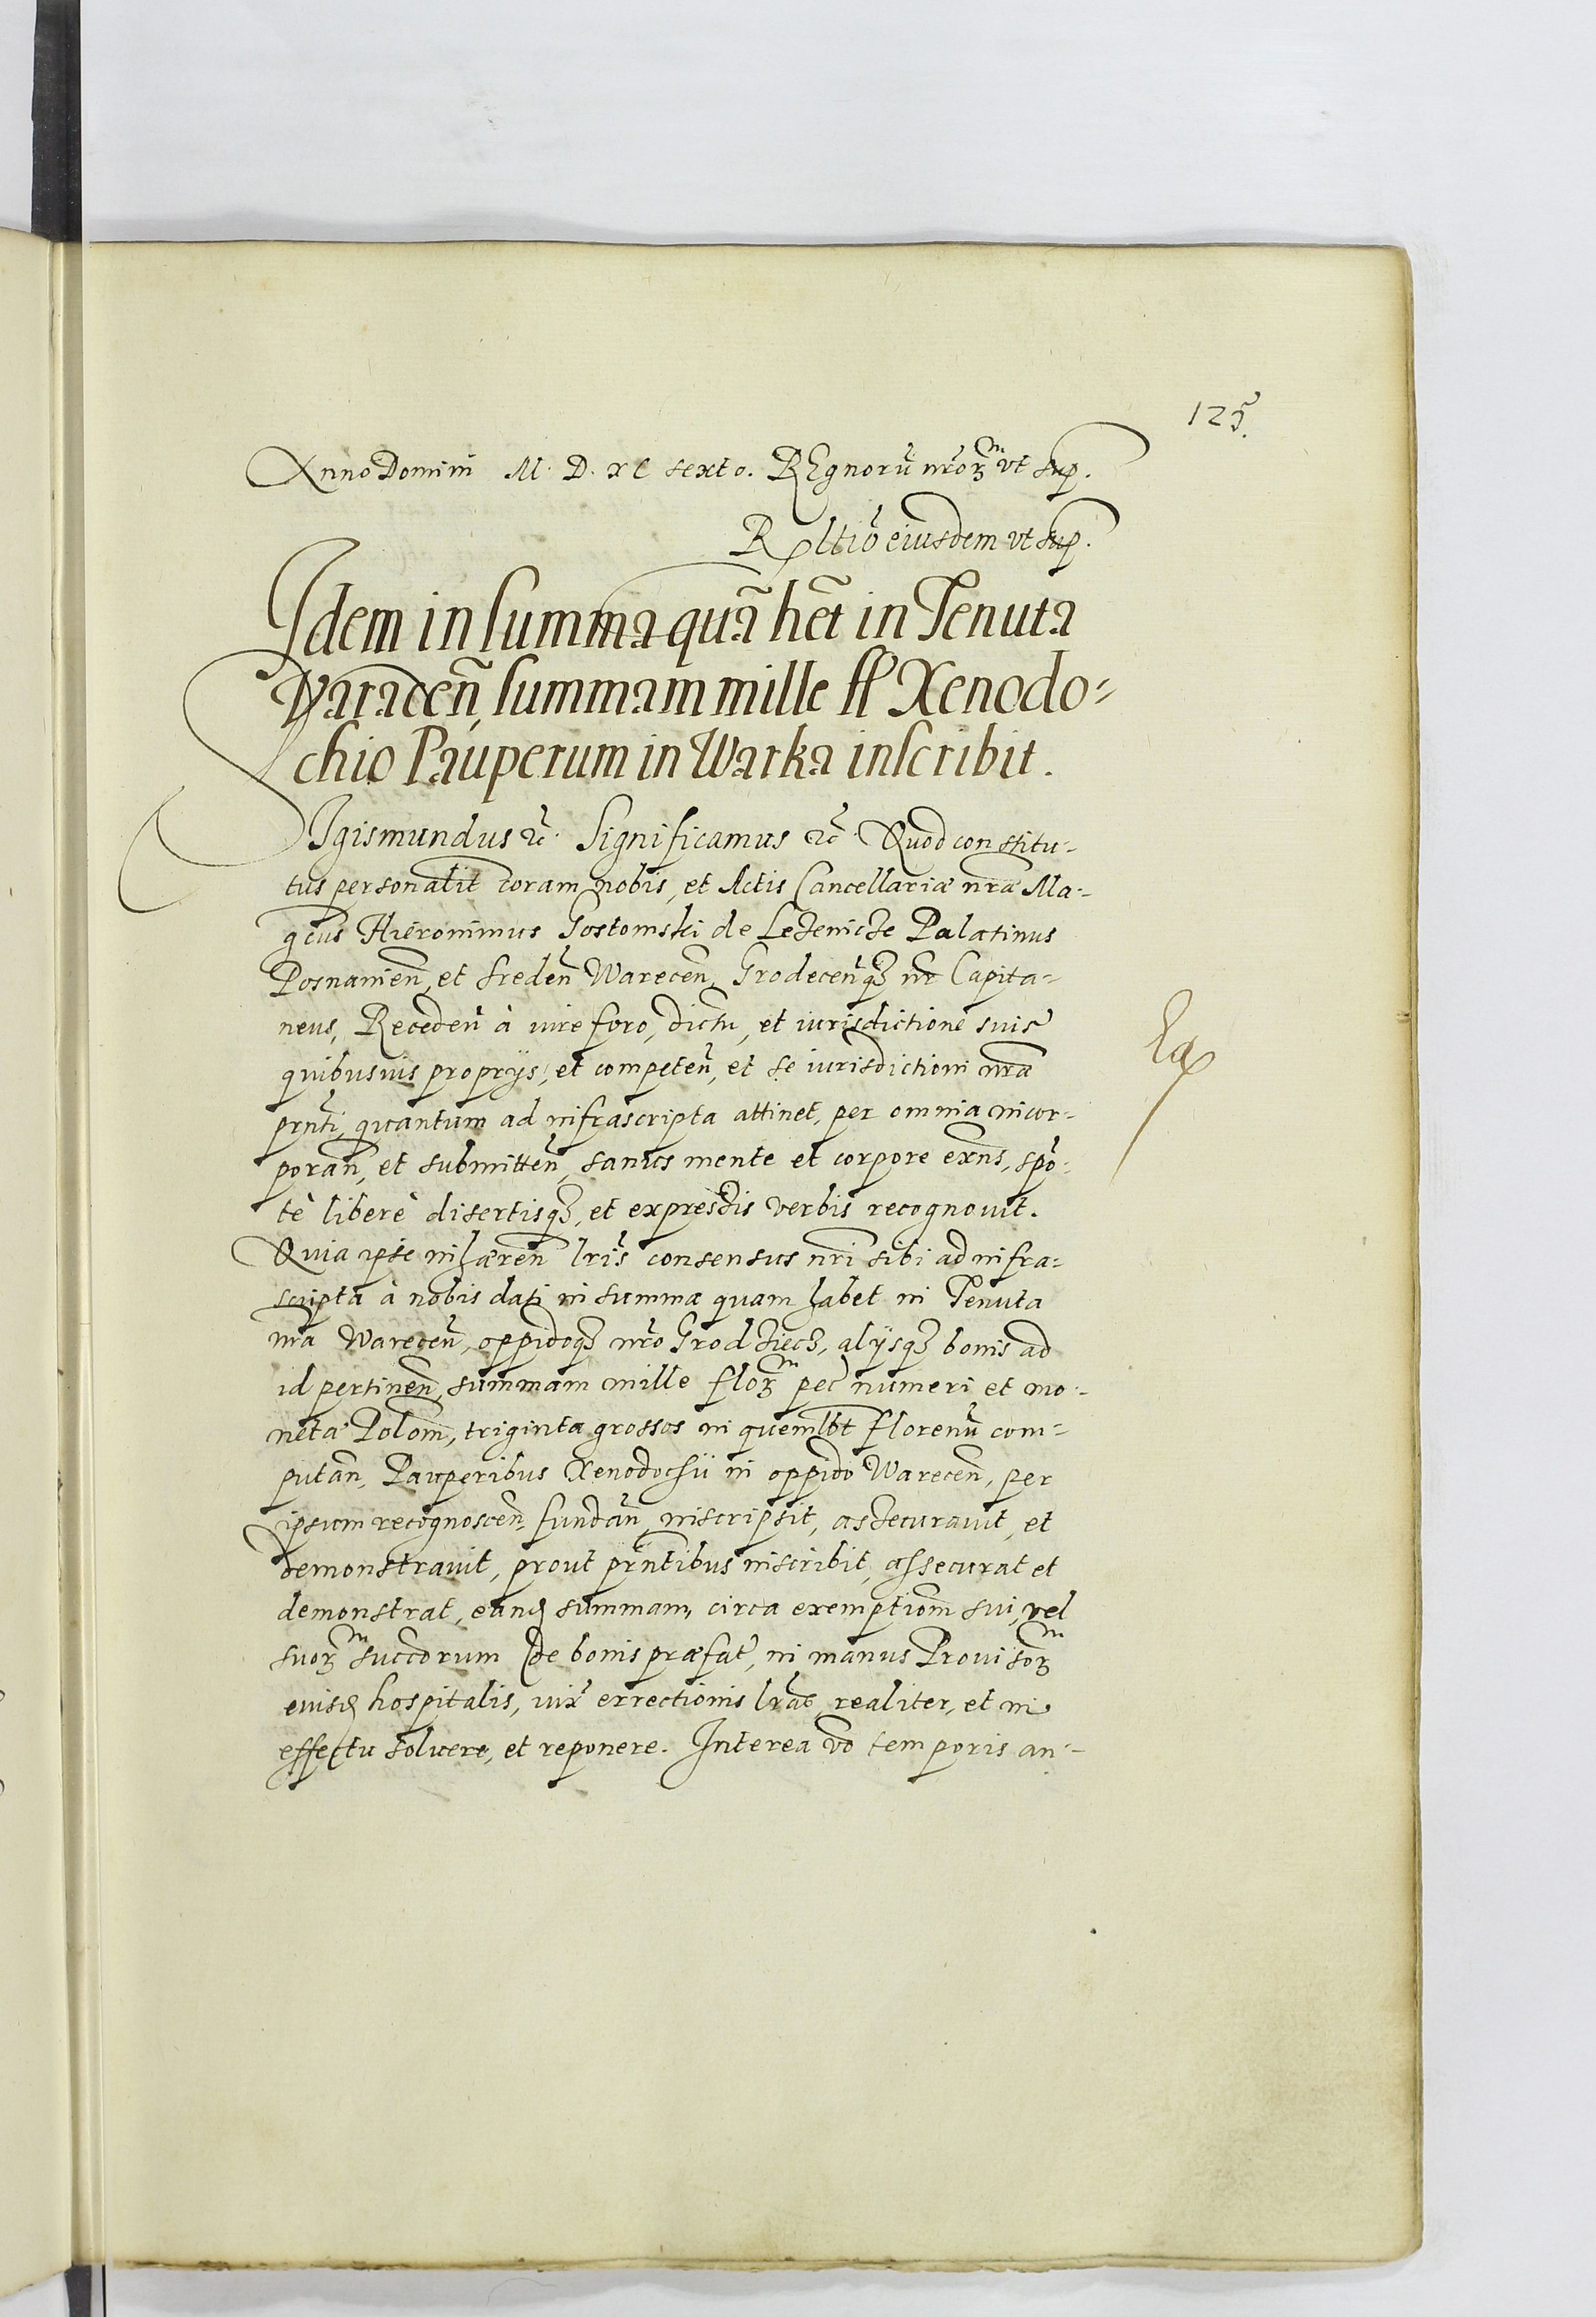 125.
Anno Domini M. D. XC sexto. REgnorū nr̄oꝝ ut sup.
Rltiō eiusdem ut sup.
Idem in summa quã hẽt in Tenuta
Varacen̄, summam mille fl Xenodo-
chio Pauperum in Warka inscribit.
SIgismundus ꝛc. Significamus ꝛc. Quod constitu-
tus personalit coram nobis, et Actis Cancellariæ nr̄æ Ma-
gcus Hieronimus Gostomski de Lezenicze Palatinus
Posnanien̄, et Sreden̄ Warecen̄, Grodecen̄qꝫ nr̄ Capita-
neus, Receden̄ à iure foro, dictu, et iurisdictione suis
quibusvis proprijs, et competen̄, et se iurisdictioni nr̄æ
prn̄ti, quantum ad infrascripta attinet, per omnia incor-
poran̄, et submitten̄, sanus mente et corpore exn̄s, spō-
tè liberè disertisqꝫ, et expressis verbis recognovit.
Quia ipse inhæren̄ lrīs consensus nr̄i sibi ad infra-
scripta à nobis dati in summa quam habet in Tenuta
nr̄a Warecen̄, oppidoqꝫ nr̄o Grodziecz, alijsqꝫ bonis ad
id pertinen̄, summam mille floꝝ pec numeri et mo-
netæ Polon̄, triginta grossos in quemlbt florenū com-
putan̄, Pauperibus Xenodochii in oppido Warecen̄, per
ipsum recognoscen̄ fundan̄ inscripsit, assecuravit, et
demonstravit, prout prn̄tibus inscribit, assecurat et
demonstrat, eandꝫ summam, circa exemptiom̄ sui, vel
suoꝝ succorum de bonis præfat, in manus Provisoꝝ
eiusdꝫ hospitalis, iux errectionis lrās, realiter, et in
effectu solvere, et reponere. Interea vō temporis an-